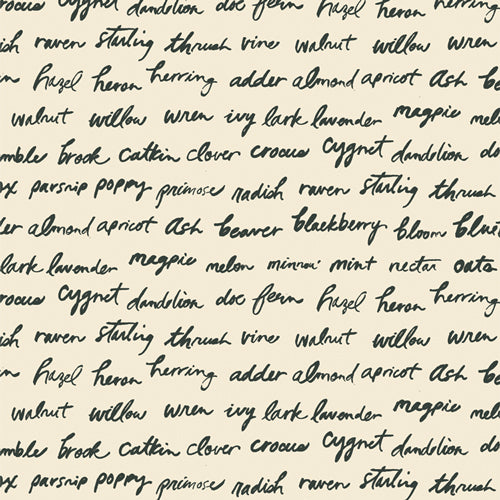 crocus cygnet dandelion doe fern hazel heron herring
radish raven starling thrush vine walnut willow wren
hazel heron herring adder almond apricot ash
walnut willow wren ivy lark lavender magpie mel
bramble brook catkin clover crocus cygnet dandelion do
ox parsnip poppy primose radish raven starling thrush
der almond apricot ash beaver blackberry bloom blue
lark lavender magpie melon minnow mint nectar oats
rocus cygnet dandelion doe fern hazel heron herring
ish raven starling thrush vine walnut willow wren
n hazel heron herring adder almond apricot ash be
walnut willow wren ivy lark lavender magpie mel
amble brook catkin clover crocus cygnet dandelion do
ox parsnip poppy primose radish raven starling thrush